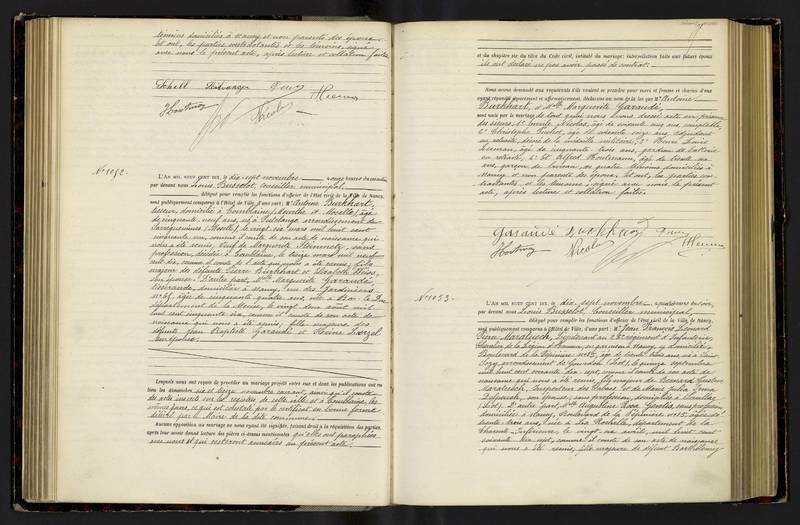 témoins domiciliés à Nancy et non parents des époux,
et ont, les parties contractantes et les témoins, signé
avec nous le présent acte, après lecture et collation faites.
Schill
Hartung
Nicolas
N° 1052.
L'An mil neuf cent dix, le dix-sept novembre, à onze heures du matin
par devant nous Louis Busselot, Conseiller municipal,
délégué pour remplir les fonctions d'officier de l'état civil de la ville de Nancy,
sont publiquement comparus à l'Hôtel de Ville, d'une part: Mr Antoine Burkhart,
domicilié à Tomblaine, (Meurthe et Moselle), âgé
de cinquante-neuf ans, né à Puttelange, arrondissement de
Sarreguemines, (Moselle), le vingt-six mars mil huit cent
cinquante un, comme il conste de son acte de naissance qui
nous a été remis, Veuf de Marguerite Steinmetz, sans
profession, décédée à Tomblaine, le treize mars mil neuf cent
dix, comme il conste de l'acte qui nous a été remis, fils
majeur de défunts Pierre Burkhart et Elisabeth Weiss,
son épouse. D'autre part, Mlle Marguerite Garaudé,
lisérande, domiciliée à Nancy, rue des Jardiniers
âgée de cinquante quatre ans, née à Bar-le-Duc
département de la Meuse, le vingt deux août mil
huit cent cinquante six, comme il conste de son acte de
naissance qui nous a été remis, fille majeure des
défunts Jean Baptiste Garaudé et Reine
son épouse.
Lesquels nous ont requis de procéder au mariage projeté entre eux et dont les publications ont eu
lieu les dimanches six et treize novembre courant, ainsi qu'il conste
de acte inscrit sur les registres de cette ville et à Tomblaine, les
mêmes jours, ce qui est constaté par le certificat en bonne forme
délivré par le Maire de la dite commune.
Aucune opposition au mariage ne nous ayant été signifiée, faisant droit à la réquisition des parties,
après leur avoir donné lecture des pièces ci-dessus mentionnées qu'elles ont paraphées
avec nous et qui resteront annexées au présent acte.
et du chapitre six du titre du Code civil, intitulé du mariage; interpellation faite aux futurs époux
ils ont déclaré ne pas avoir passé de contrat.
Nous avons demandé aux requérants s'ils veulent se prendre pour mari et femme et chacun d'eux
ayant répondu séparément et affirmativement, déclarons au nom de la loi que Mr Antoine
Burkhart, et Mlle Marguerite Garaudé,
sont unis par le mariage de tout quoi nous avons dressé acte en présence
des sieurs: 1° Emile Nicolas, âgé de soixante cinq ans, comptable,
2° Christophe âgé de soixante seize ans, adjudant
en retraite, décoré de la médaille militaire, 3° Henri Louis
âgé de cinquante trois ans, gardien de batterie
en retraite, 4° et Alfred âgé de trente
ans, garçon de bureau, tous quatre témoins domiciliés à
Nancy et non parents des époux. Et ont, les parties con-
tractantes et les témoins, signé avec nous le présent
acte, après lecture et collation faites.
Garaudé
Hartung Nicolas
N° 1053.
L'An mil neuf cent dix, le dix-sept novembre, à quatre heures du soir,
par devant nous Louis Busselot, Conseiller municipal,
délégué pour remplir les fonctions d'officier de l'état civil de la ville de Nancy,
sont publiquement comparus à l'Hôtel de Ville, d'une part: Mr Jean François Léonard
Pierre Maratuech, Lieutenant au régiment d'Infanterie,
Chevalier de la Légion d'Honneur, en garnison à Nancy, y domicilié
Boulevard de la Pépinière âgé de trente trois ans, né à Saint
Cozy, arrondissement de Gourdon (Lot), le quinze septembre
mil huit cent soixante dix-sept, comme il conste de son acte de
naissance qui nous a été remis, fils majeur de Bernard Gustave
Maratuech, Inspecteur des Tabacs et de dame Julia
Delpeuch, son épouse, sans profession, domiciliés à Souillac
(Lot). D'autre part, Mlle Jacqueline Rose sans profession
domiciliée à Nancy, Boulevard de la Pépinière, âgée de
trente trois ans, née à La Rochelle, département de la
Charente-Inférieure, le vingt six avril, mil huit cent
soixante dix-sept, comme il conste de son acte de naissance
qui nous a été remis, fille majeure de défunt Barthélemy